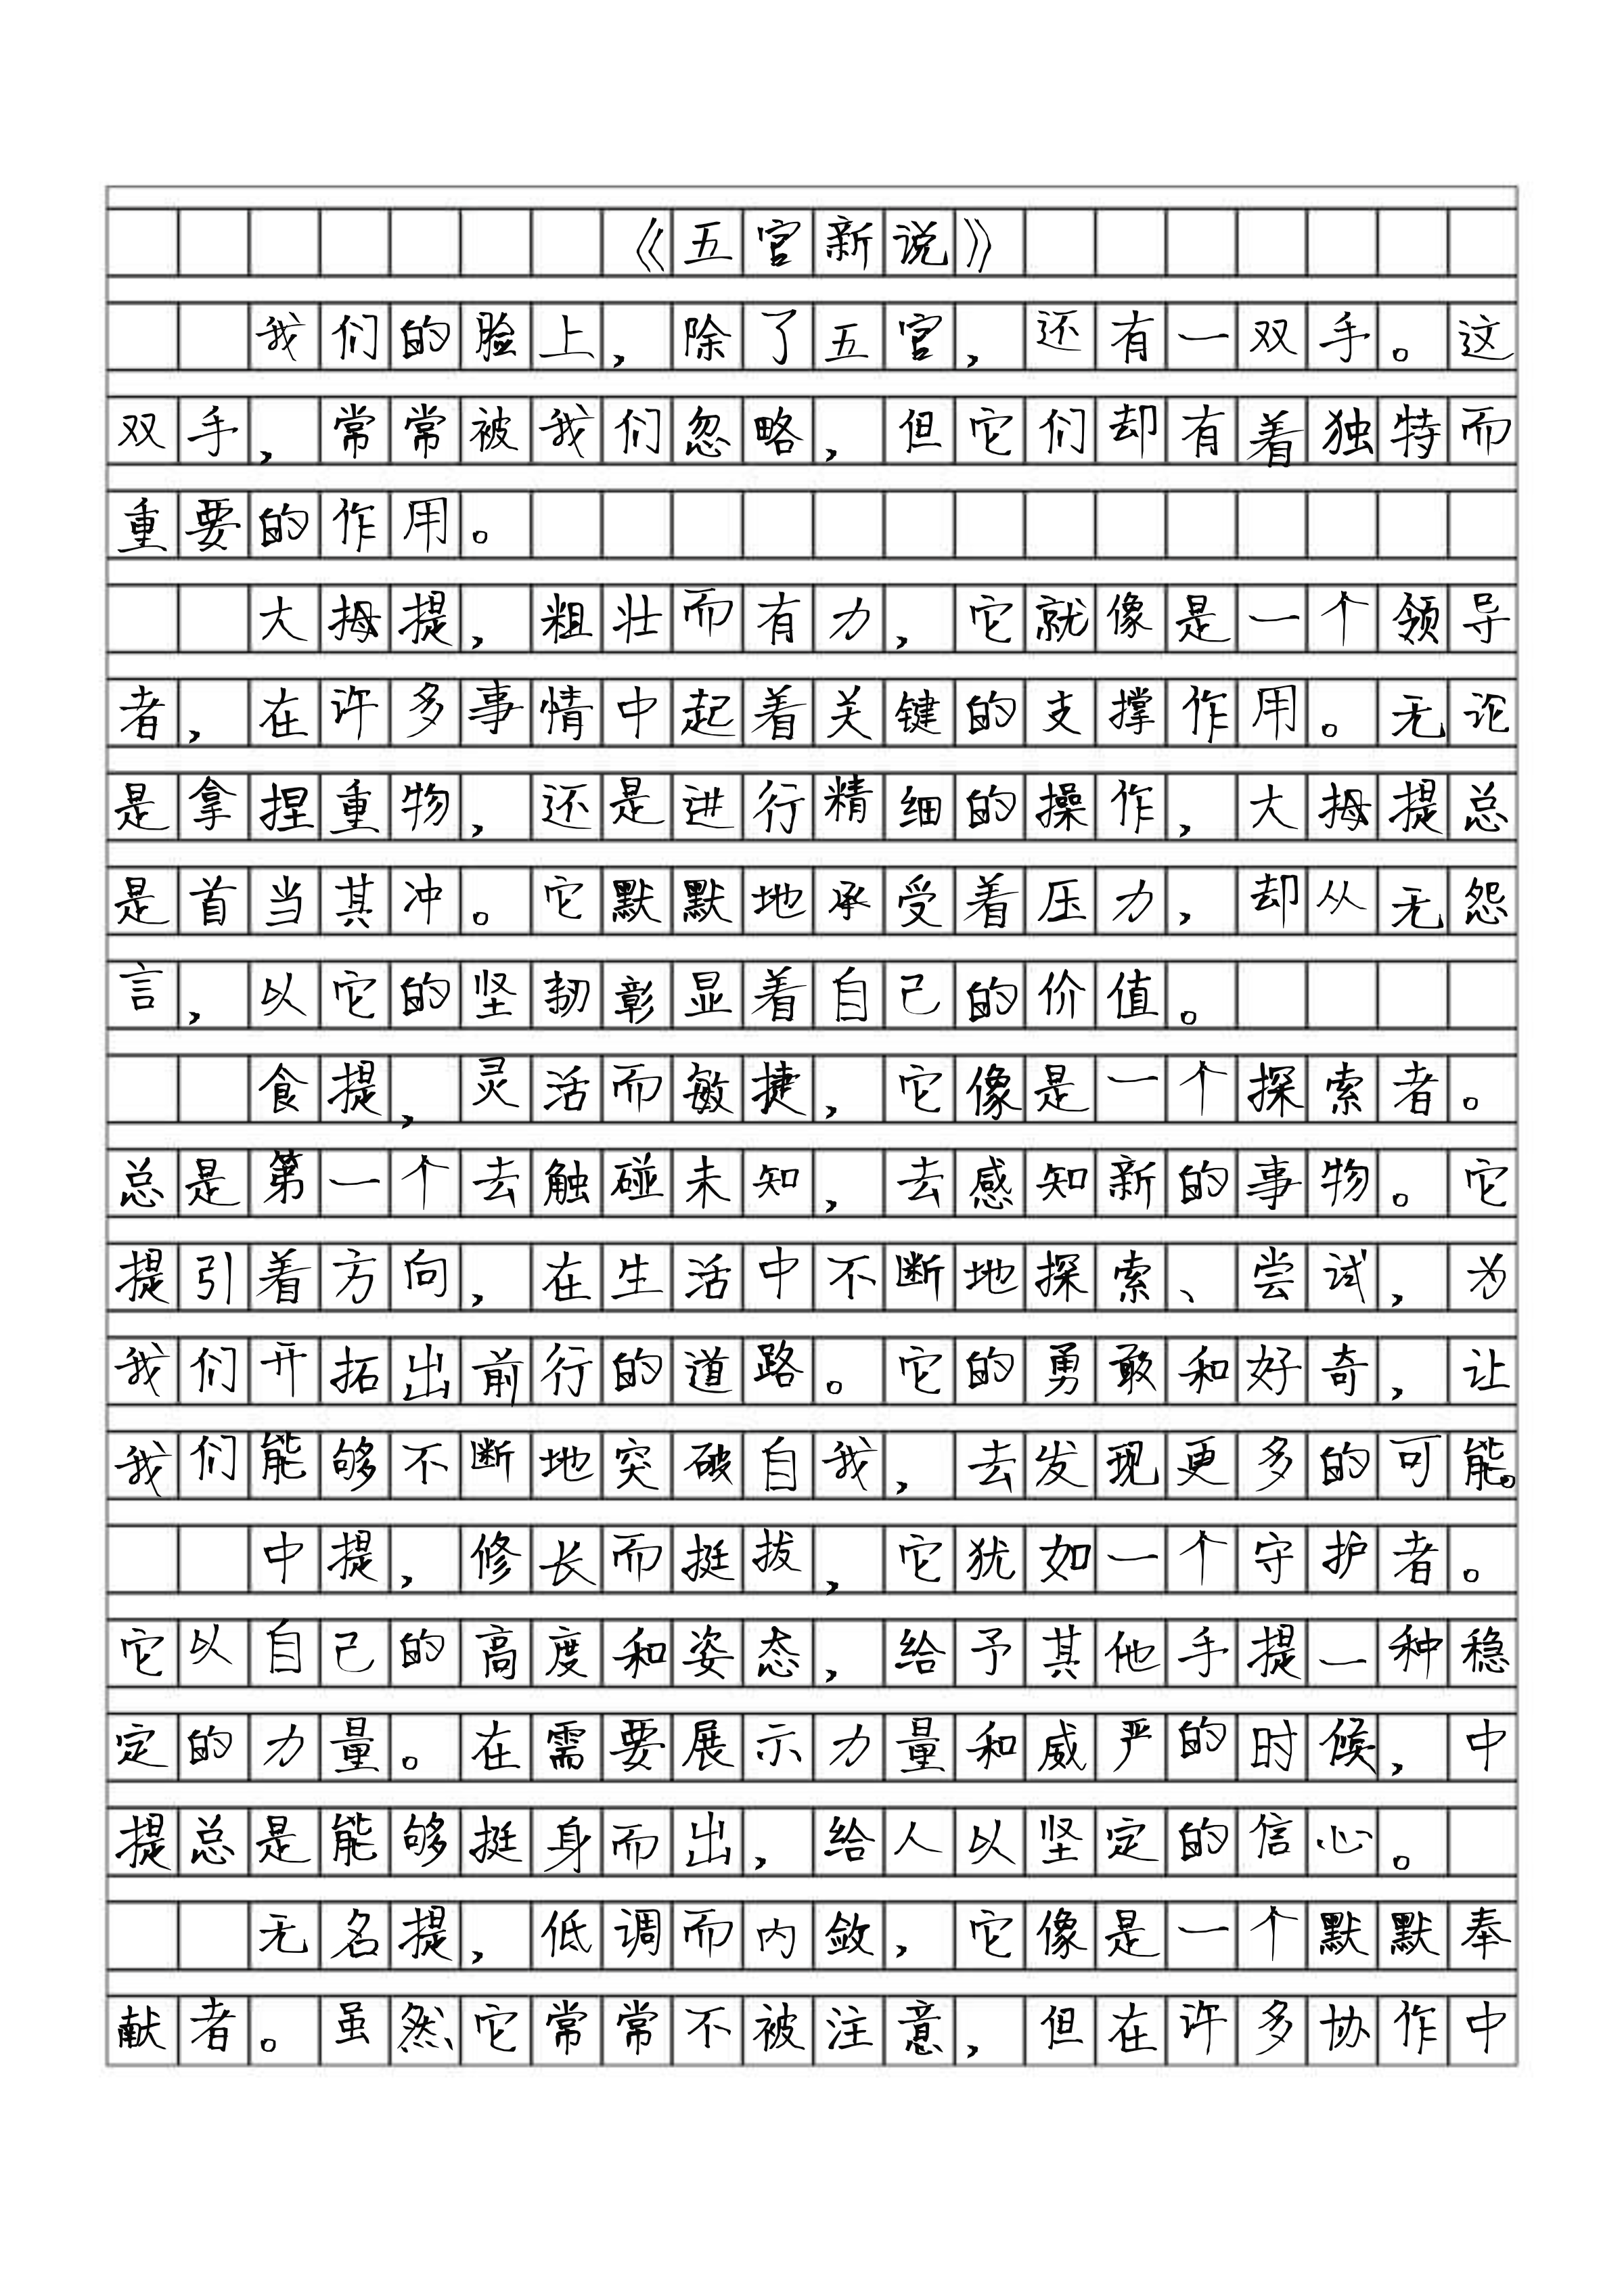 《五官新说》
我们的脸上，除了五官，还有一双手。这
双手，常常被我们忽略，但它们却有着独特而
重要的作用。
大拇提，粗壮而有力，它就像是一个领导
者，在许多事情中起着关键的支撑作用。无论
是拿捏重物，还是进行精细的操作，大拇提总
是首当其冲。它默默地承受着压力，却从无怨
言，以它的坚韧彰显着自己的价值。
食提，灵活而敏捷，它像是一个探索者。
总是第一个去触碰未知，去感知新的事物。它
提引着方向，在生活中不断地探索、尝试，为
我们开拓出前行的道路。它的勇敢和好奇，让
我们能够不断地突破自我，去发现更多的可能。
中提，修长而挺拔，它犹如一个守护者。
它以自己的高度和姿态，给予其他手提一种稳
定的力量。在需要展示力量和威严的时候，中
提总是能够挺身而出，给人以坚定的信心。
无名提，低调而内敛，它像是一个默默奉
献者。虽然它常常不被注意，但在许多协作中